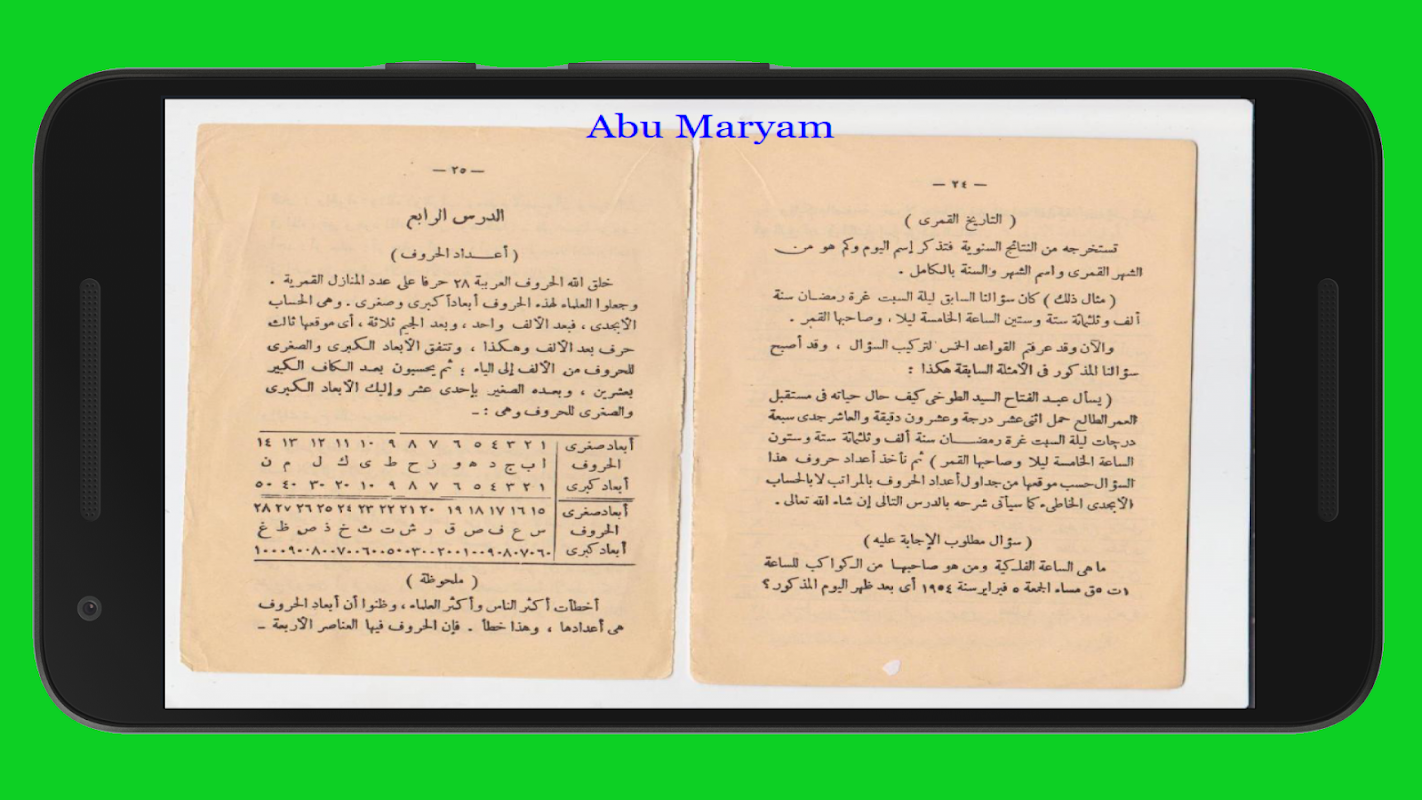 Abu Maryam
— ٢٤ —
( التاريخ القمرى )
تستخرجه من النتائج السنوية فتذكر إسم اليوم وكم هو من
الشهر القمرى واسم الشهر والسنة بالكامل .
( مثال ذلك ) كان سؤالنا السابق ليلة السبت غرة رمضان سنة
ألف وثلثمائة ستة وستين الساعة الخامسة ليلا ، وصاحبها القمر .
والآن وقد عرفتم القواعد الخمس لتركيب السؤال ، وقد أصبح
سؤالنا المذكور فى الأمثلة السابقة هكذا :
( يسأل عبد الفتاح السيد الطوخى كيف حال حياته فى مستقبل
العمر الطالع حمل اثنى عشر درجة وعشرون دقيقة والعاشر جدى سبعة
درجات ليلة السبت غرة رمضان سنة ألف وثلثمائة ستة وستون
الساعة الخامسة ليلا وصاحبها القمر ) ثم نأخذ أعداد حروف هذا
السؤال حسب موقعها من جداول أعداد الحروف بالمراتب لا بالحساب
الأبجدى الخاطىء كما سيأتى شرحه بالدرس التالى إن شاء الله تعالى .
( سؤال مطلوب الإجابة عليه )
ماهى الساعة الفلكية ومن هو صاحبها من الكواكب للساعة
١ت ٥ق مساء الجمعة ٥ فبراير سنة ١٩٥٤ أى بعد ظهر اليوم المذكور ؟
— ٢٥ —
الدرس الرابع
( أعداد الحروف )
خلق الله الحروف العربية ٢٨ حرفا على عدد المنازل القمرية .
وجعلوا العلماء لهذه الحروف أبعاداً كبرى وصغرى . وهى الحساب
الأبجدى ، فبعد الألف واحد ، وبعد الجيم ثلاثة ، أى موقعها ثالث
حرف بعد الألف وهكذا ، وتتفق الأبعاد الكبرى والصغرى
للحروف من الألف إلى الياء ؛ ثم يحسبون بعد الكاف الكبير
بعشرين ، وبعده الصغير بإحدى عشر وإليك الأبعاد الكبرى
والصغرى للحروف وهى : –
أبعاد صغرى ١ ٢ ٣ ٤ ٥ ٦ ٧ ٨ ٩ ١٠ ١١ ١٢ ١٣ ١٤
الحروف ا ب ج د ه و ز ح ط ى ك ل م ن
أبعاد كبرى ١ ٢ ٣ ٤ ٥ ٦ ٧ ٨ ٩ ١٠ ٢٠ ٣٠ ٤٠ ٥٠
أبعاد صغرى ١٥ ١٦ ١٧ ١٨ ١٩ ٢٠ ٢١ ٢٢ ٢٣ ٢٤ ٢٥ ٢٦ ٢٧ ٢٨
الحروف س ع ف ص ق ر ش ت ث خ ذ ض ظ غ
أبعاد كبرى ٦٠ ٧٠ ٨٠ ٩٠ ١٠٠ ٢٠٠ ٣٠٠ ٤٠٠ ٥٠٠ ٦٠٠ ٧٠٠ ٨٠٠ ٩٠٠ ١٠٠٠
( ملحوظة )
أخطأت أكثر الناس وأكثر العلماء ، وظنوا أن أبعاد الحروف
هى أعدادها ، وهذا خطأ . فإن الحروف فيها العناصر الأربعة –